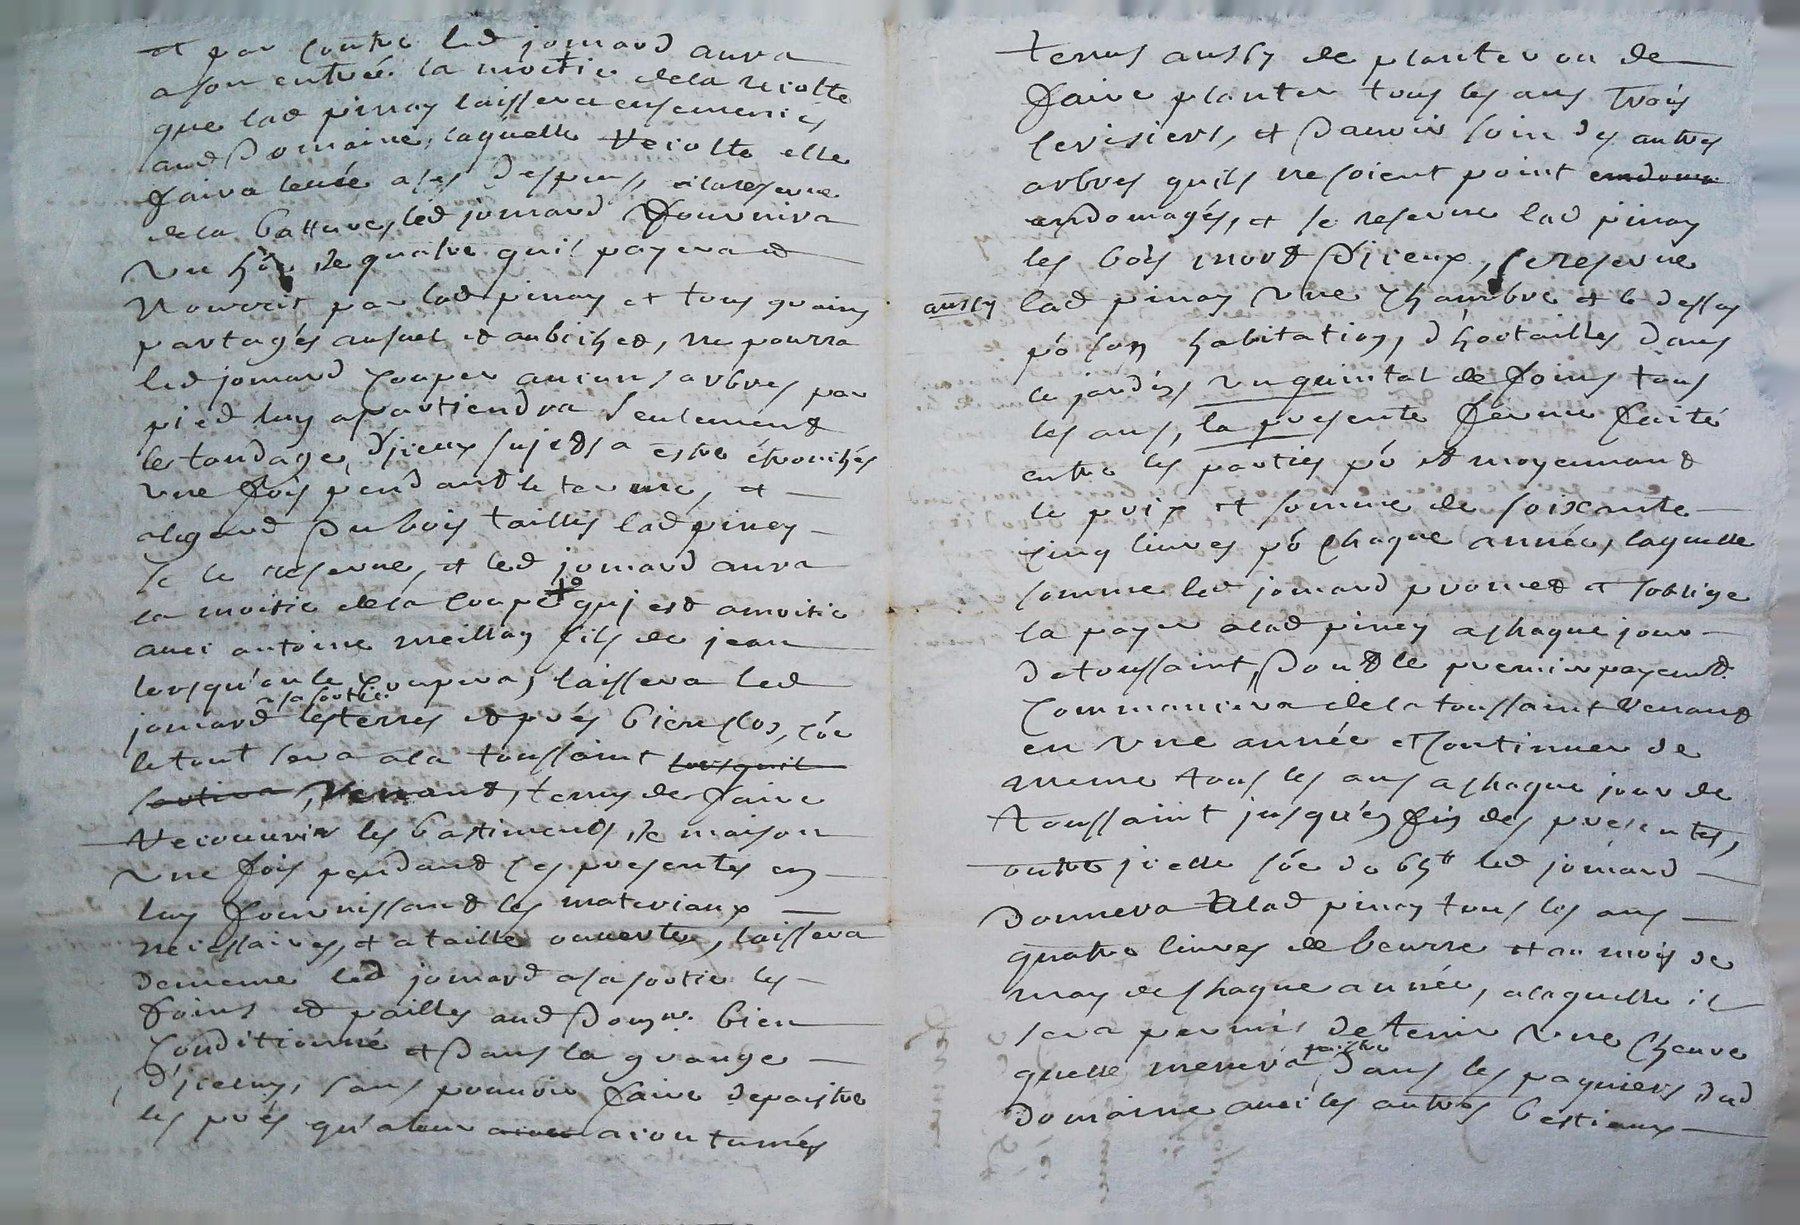 et par contre led jomard aura
a son entrée la moitie de la recolte
que lad pinay laissera ensemencés
aud Domaine, laquelle recolte elle
faira levée a ses despens, a la reserve
de la batture, led jomard fournira
un hôe de quatre quil payera et
Nourrit par lad pinay et tous grains
partagés ausuel et aubeiched, ne pourra
led jomard couper aucuns arbres par
pied luy apartiendra seulement
les tondage d'jceux sujets a estre étronchés
une fois pendant le terme, et
alegard du bois taillis lad piney
se le reserve, et led jomard aura
la moitie de la coupe quj est amoitie
avec antoine meillay fils de jean
lorsqu'on le coupera, laissera led
jomard a sa sortie les terres et prés bien clos, côe
le tout sera a la toussaint lorsquil
sortira, Venant, tenus de faire
Recouvrir les bastiments de maison
une fois pendant ces presentes en
luy fournissant les materiaux
necessaires, et a taille ouverte, laissera
de meme led jomard a sa sortie les
foins et pailles aud Domne. bien
Conditionné et dans la grange
d'jceluy, sans pouvoir faire depaistre
les prés qu'aleur acou acoutumés
tenus aussy de planter ou de
faire planter tous les ans trois
cerisiers, et d'avoir soin des autres
arbres quils ne soient point endoma
endomagés, et se reserve lad pinay
les bois mort d'jceux, se reserve
aussy lad pinay une chambre et le dessus
pô son habitation, d'hortailles dans
le jardin un quintal de foins tous
les ans, la presente ferme faité
entre les parties pô et moyennant
le prix et somme de soixante
cinq livres pô chaque année, laquelle
somme led jomard promet et soblige
la payer a lad piney a chaque jour
de toussaint, dont le premier payemt.
Commancera de la toussaint Venant
en une année et continuer de
meme tous les ans a chaque jour de
toussaint jusqu'en fin des presentes,
outre jcelle sôe de 65tt led jomard
donnera a lad pinay tous les ans
quatre livres de beurre et au mois de
may de chaque année, alaquelle il
sera permis de tenir une cheuve
quelle menera paistre dans les paquiers dud
Domaine avec les autres bestiaux